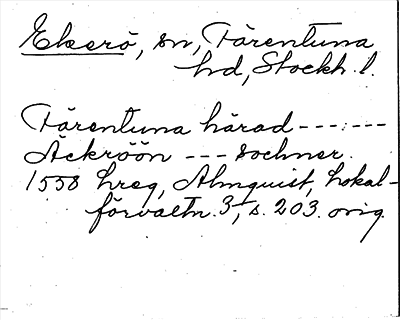 Ekerö, sn, Färentuna
hd, Stockh. l.
Färentuna härad --- ---
Äckröön --- sochner.
1538 hreg, Almquist, Lokal-
förvaltn. 3, s. 203. orig.